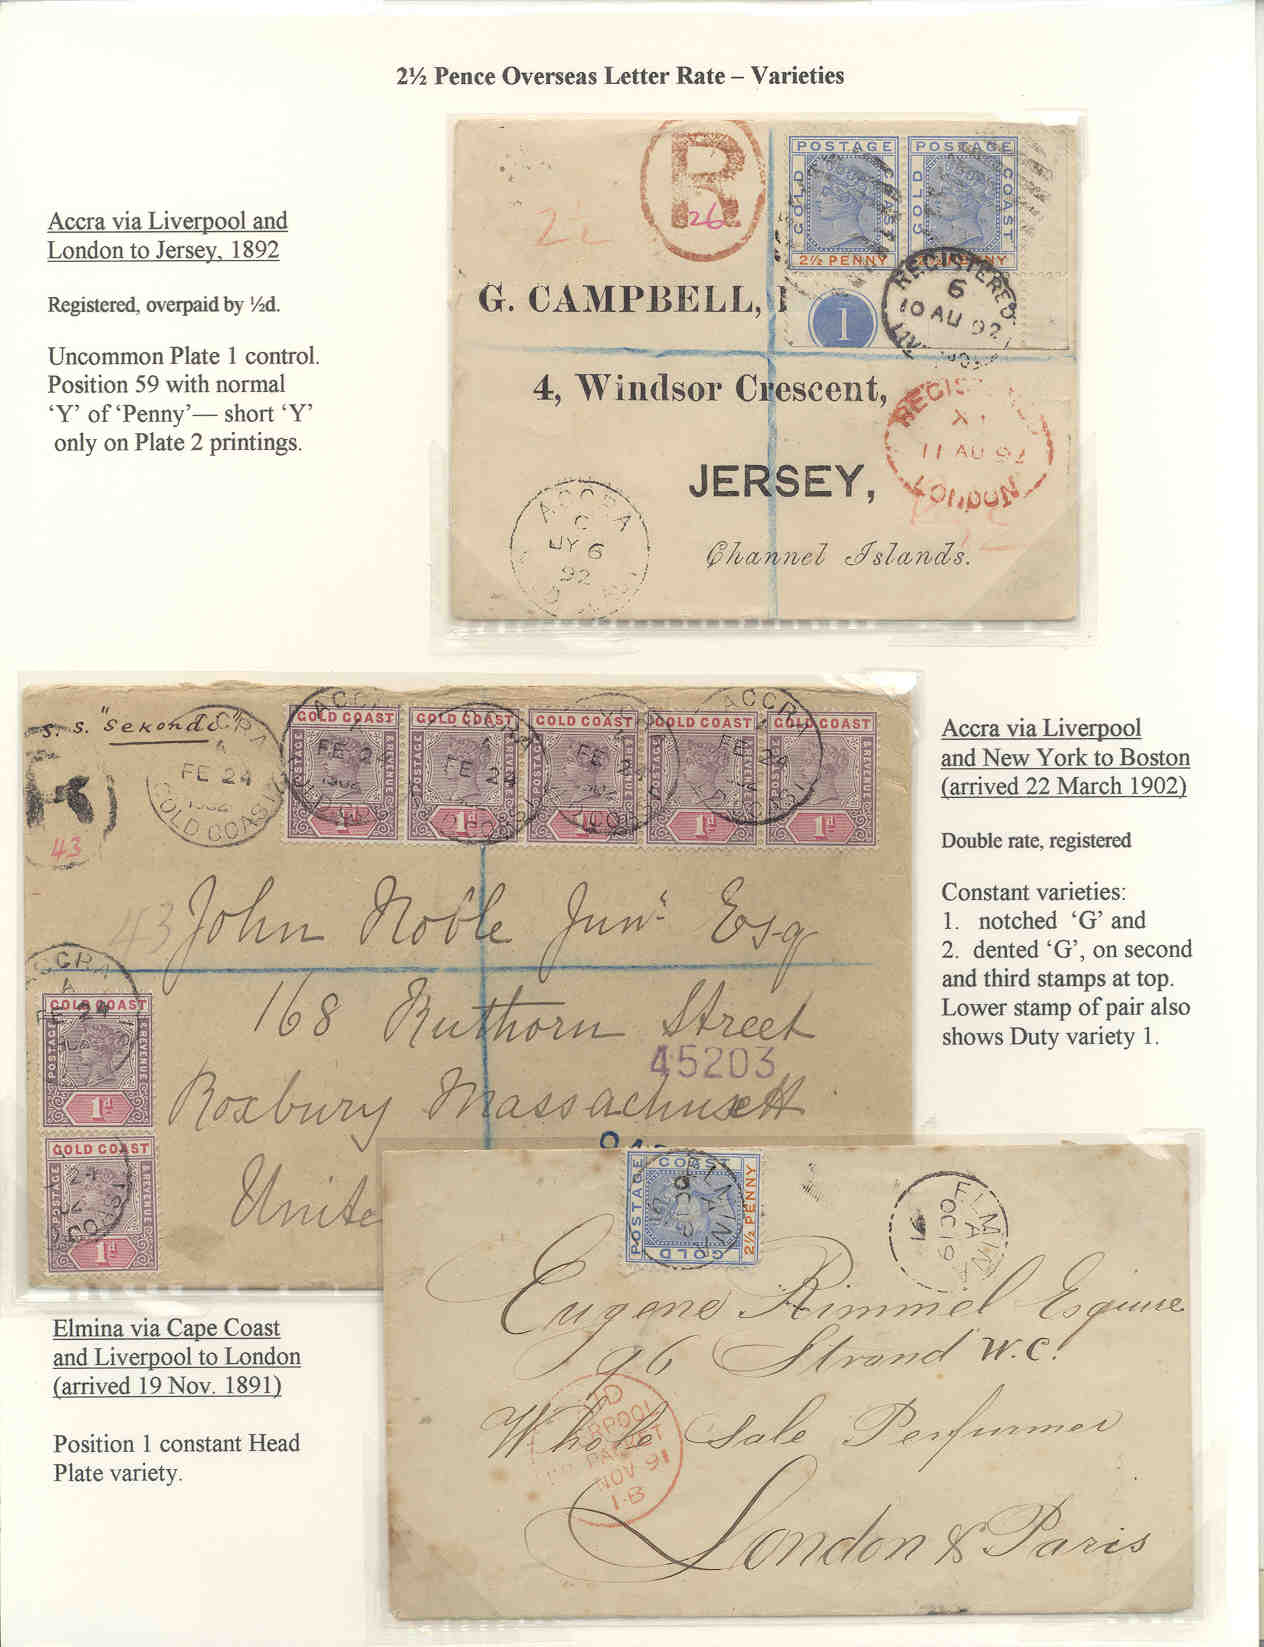 2½ Pence Overseas Letter Rate – Varieties
Accra via Liverpool and
London to Jersey, 1892
Registered, overpaid by ½d.
Uncommon Plate 1 control.
Position 59 with normal
‘Y’ of ‘Penny’— short ‘Y’
only on Plate 2 printings.
R
26
2½
POSTAGE
GOLD
COAST
2½ PENNY
POSTAGE
GOLD
COAST
2½ PENNY
1
REGISTERED
6
10 AU 92
G. CAMPBELL,
4, Windsor Crescent,
JERSEY,
Channel Islands.
11 AU 92
LONDON
ACCRA
C
JY 6
92
Accra via Liverpool
and New York to Boston
(arrived 22 March 1902)
Double rate, registered
Constant varieties:
1. notched ‘G’ and
2. dented ‘G’, on second
and third stamps at top.
Lower stamp of pair also
shows Duty variety 1.
S. S. "Sekondi"
R
43
FE 24
1902
GOLD COAST
GOLD COAST
POSTAGE
& REVENUE
1d
GOLD COAST
POSTAGE
& REVENUE
1d
GOLD COAST
POSTAGE
& REVENUE
1d
GOLD COAST
POSTAGE
& REVENUE
1d
GOLD COAST
POSTAGE
& REVENUE
1d
ACCRA
FE 24
43 John Noble Junr. Esq
168 Ruthorn Street
45203
Roxbury Massachusett
Unite
ACCRA
A
FE 24
GOLD COAST
POSTAGE
& REVENUE
1d
GOLD COAST
POSTAGE
& REVENUE
1d
Elmina via Cape Coast
and Liverpool to London
(arrived 19 Nov. 1891)
Position 1 constant Head
Plate variety.
POSTAGE
GOLD
COAST
2½ PENNY
ELMINA
A
OC 19
91
Eugene Rimmel Esquire
96 Strand W.C.
Whole Sale Perfumer
London & Paris
PACKET
NOV 91
1-B